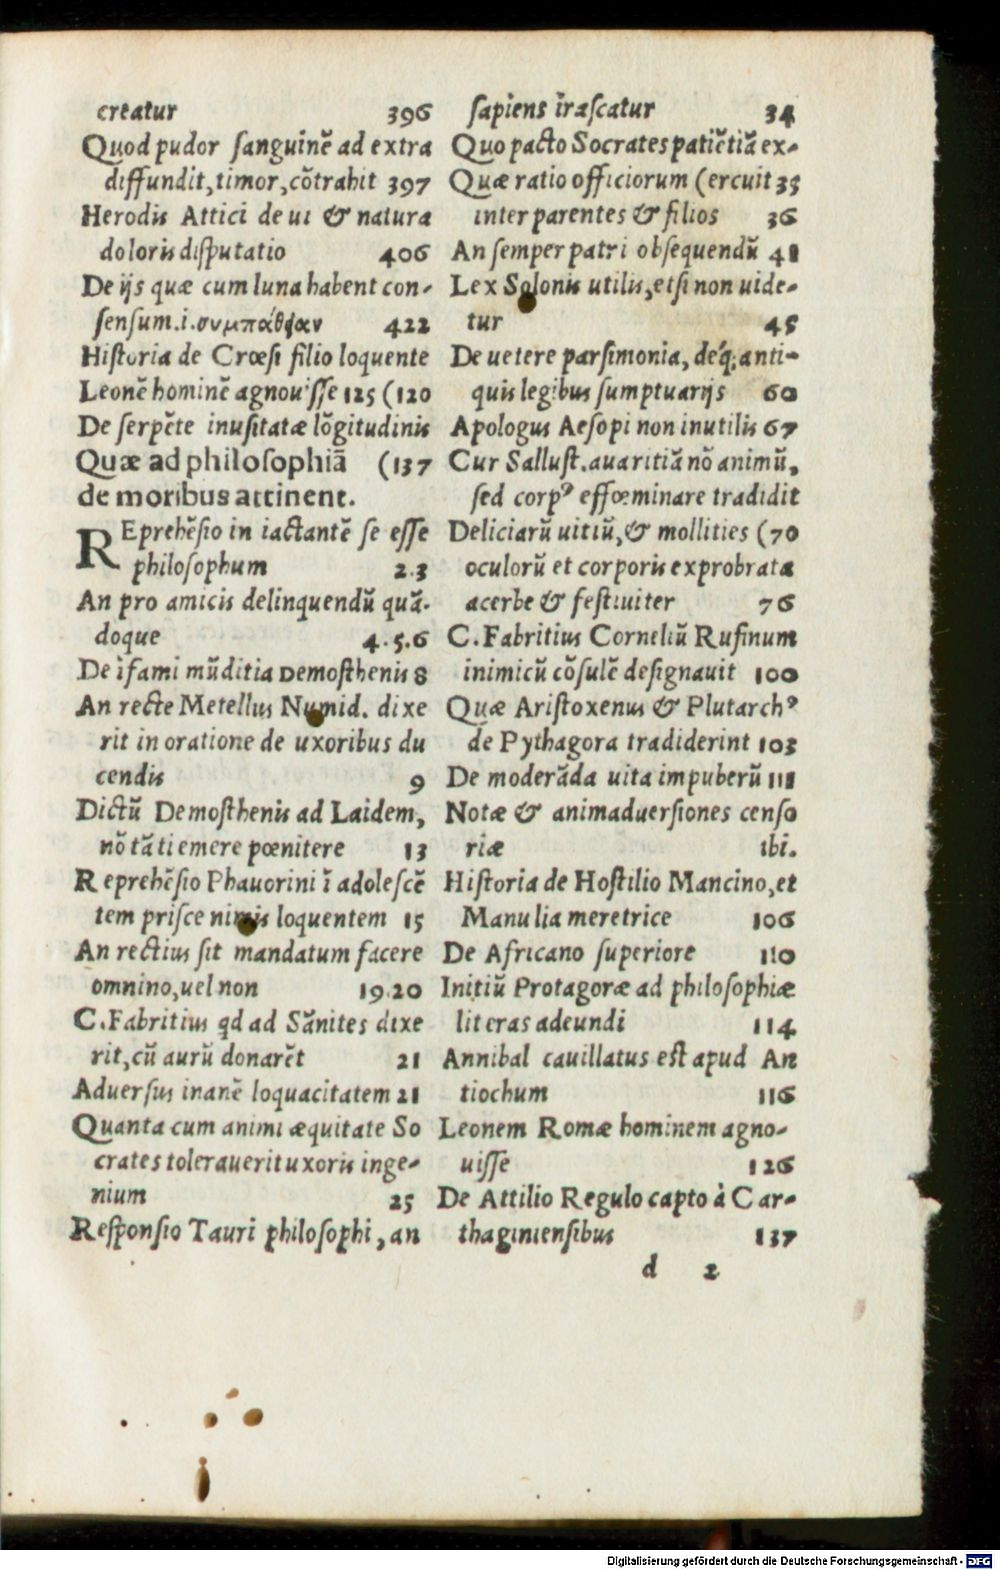 creatur 396
Quod pudor sanguinē ad extra
diffundit, timor, cōtrahit 397
Herodis Attici de ui & natura
doloris disputatio 406
De ijs quæ cum luna habent con-
sensum.i.συμπάθειαν 422
Historia de Crœsi filio loquente
Leonē hominē agnouisse 125 (120
De serpēte inusitatæ lōgitudinis
Quæ ad philosophiā (137
de moribus attinent.
REprehēsio in iactantē se esse
philosophum 2.3
An pro amicis delinquendū quā-
doque 4.5.6
De ĩfami mūditia Demosthenis 8
An recte Metellus Numid. dixe
rit in oratione de uxoribus du
cendis 9
Dictū Demosthenis ad Laidem,
nō tāti emere pœnitere 13
Reprehēsio Phauorini ĩ adolescē
tem prisce nimis loquentem 15
An rectius sit mandatum facere
omnino, uel non 19.20
C. Fabritius qd ad Sānites dixe
rit, cū aurū donarēt 21
Aduersus inanē loquacitatem 21
Quanta cum animi æquitate So
crates tolerauerit uxoris inge-
nium 25
Responsio Tauri philosophi, an
sapiens irascatur 34
Quo pacto Socrates patiētiā ex-
Quæ ratio officiorum (ercuit 35
inter parentes & filios 36
An semper patri obsequendū 41
Lex Solonis utilis, etsi non uide-
tur 45
De uetere parsimonia, deq́; anti-
quis legibus sumptuarijs 60
Apologus Aesopi non inutilis 67
Cur Sallust. auaritiā nō animū,
sed corpꝰ effœminare tradidit
Deliciarū uitiū, & mollities (70
oculorū et corporis exprobrata
acerbe & festiuiter 76
C. Fabritius Corneliū Rufinum
inimicū cōsulē designauit 100
Quæ Aristoxenus & Plutarchꝰ
de Pythagora tradiderint 103
De moderāda uita impuberū 111
Notæ & animaduersiones censo
riæ ibi.
Historia de Hostilio Mancino, et
Manulia meretrice 106
De Africano superiore 110
Initiū Protagoræ ad philosophiæ
literas adeundi 114
Annibal cauillatus est apud An
tiochum 116
Leonem Romæ hominem agno-
uisse 126
De Attilio Regulo capto à Car-
thaginiensibus 137
d 2
Digitalisierung gefördert durch die Deutsche Forschungsgemeinschaft - DFG